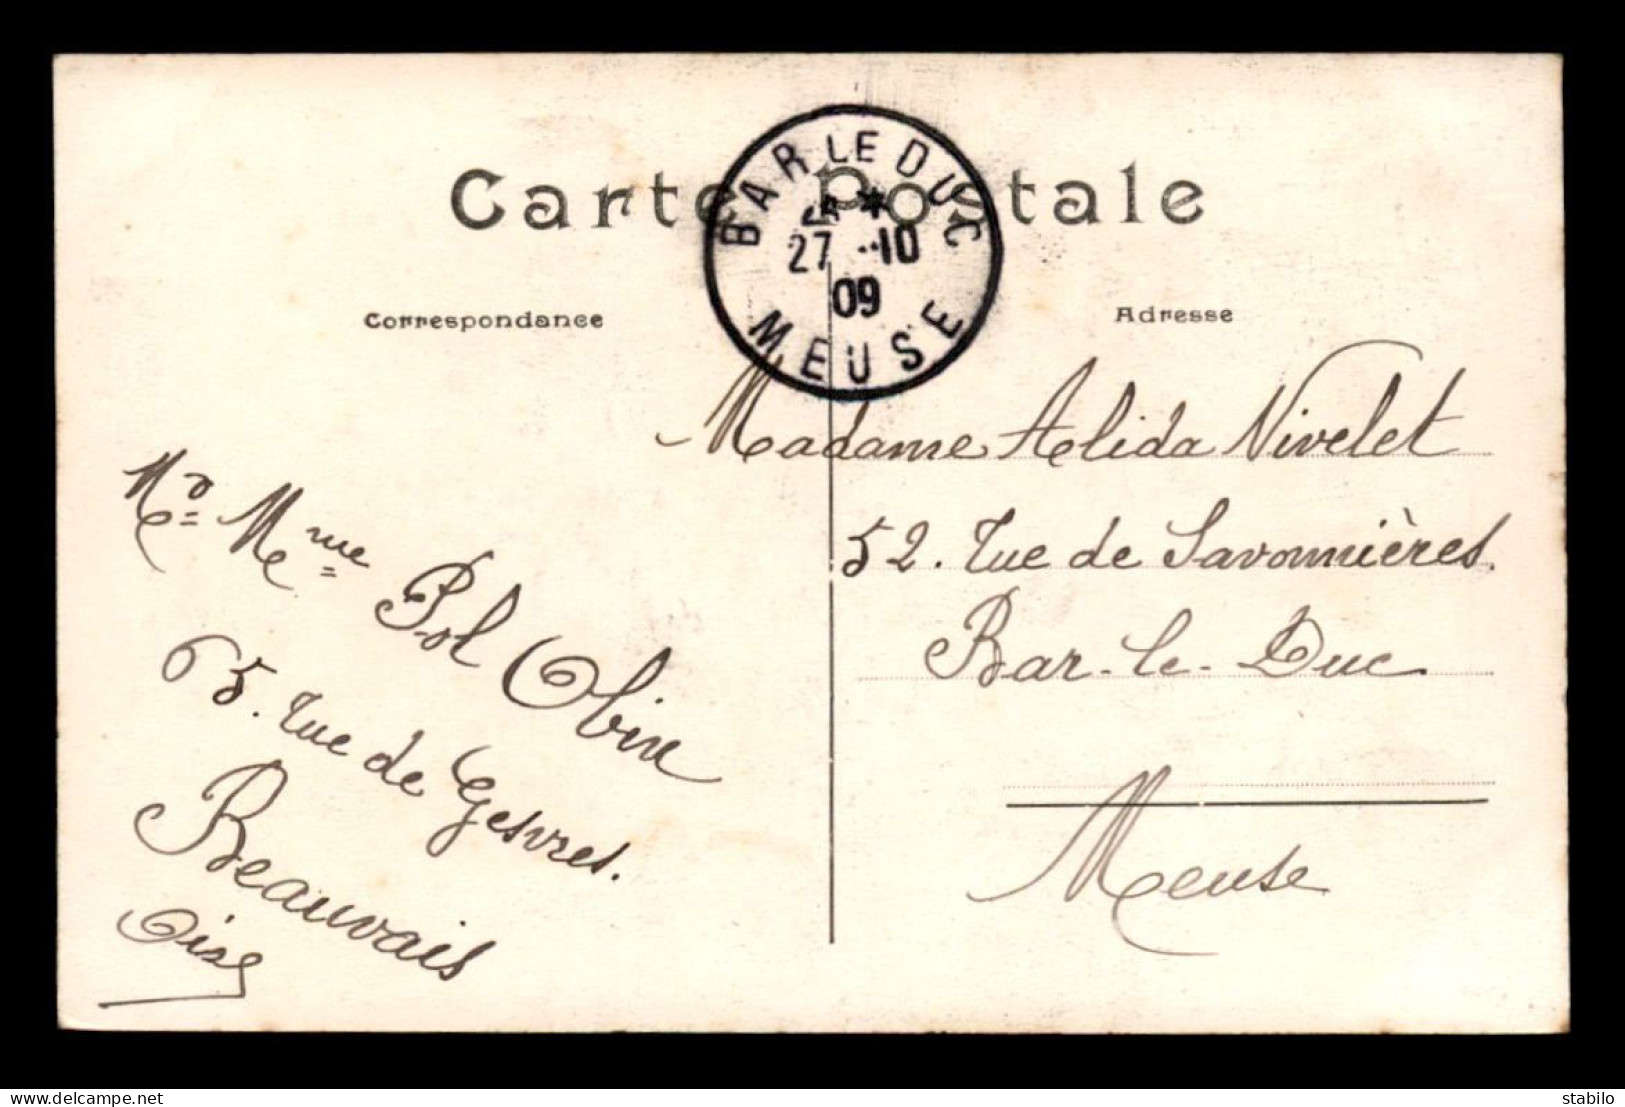 Carte Postale
BAR LE DUC
27 -10
09
MEUSE
Correspondance
Adresse
Madame Alida Nivelet
52. rue de Savonnières.
Bar-le-Duc
Meuse
Mme Pol
65. rue de Gesvres.
Beauvais
Oise
delcampe.net
stabilo